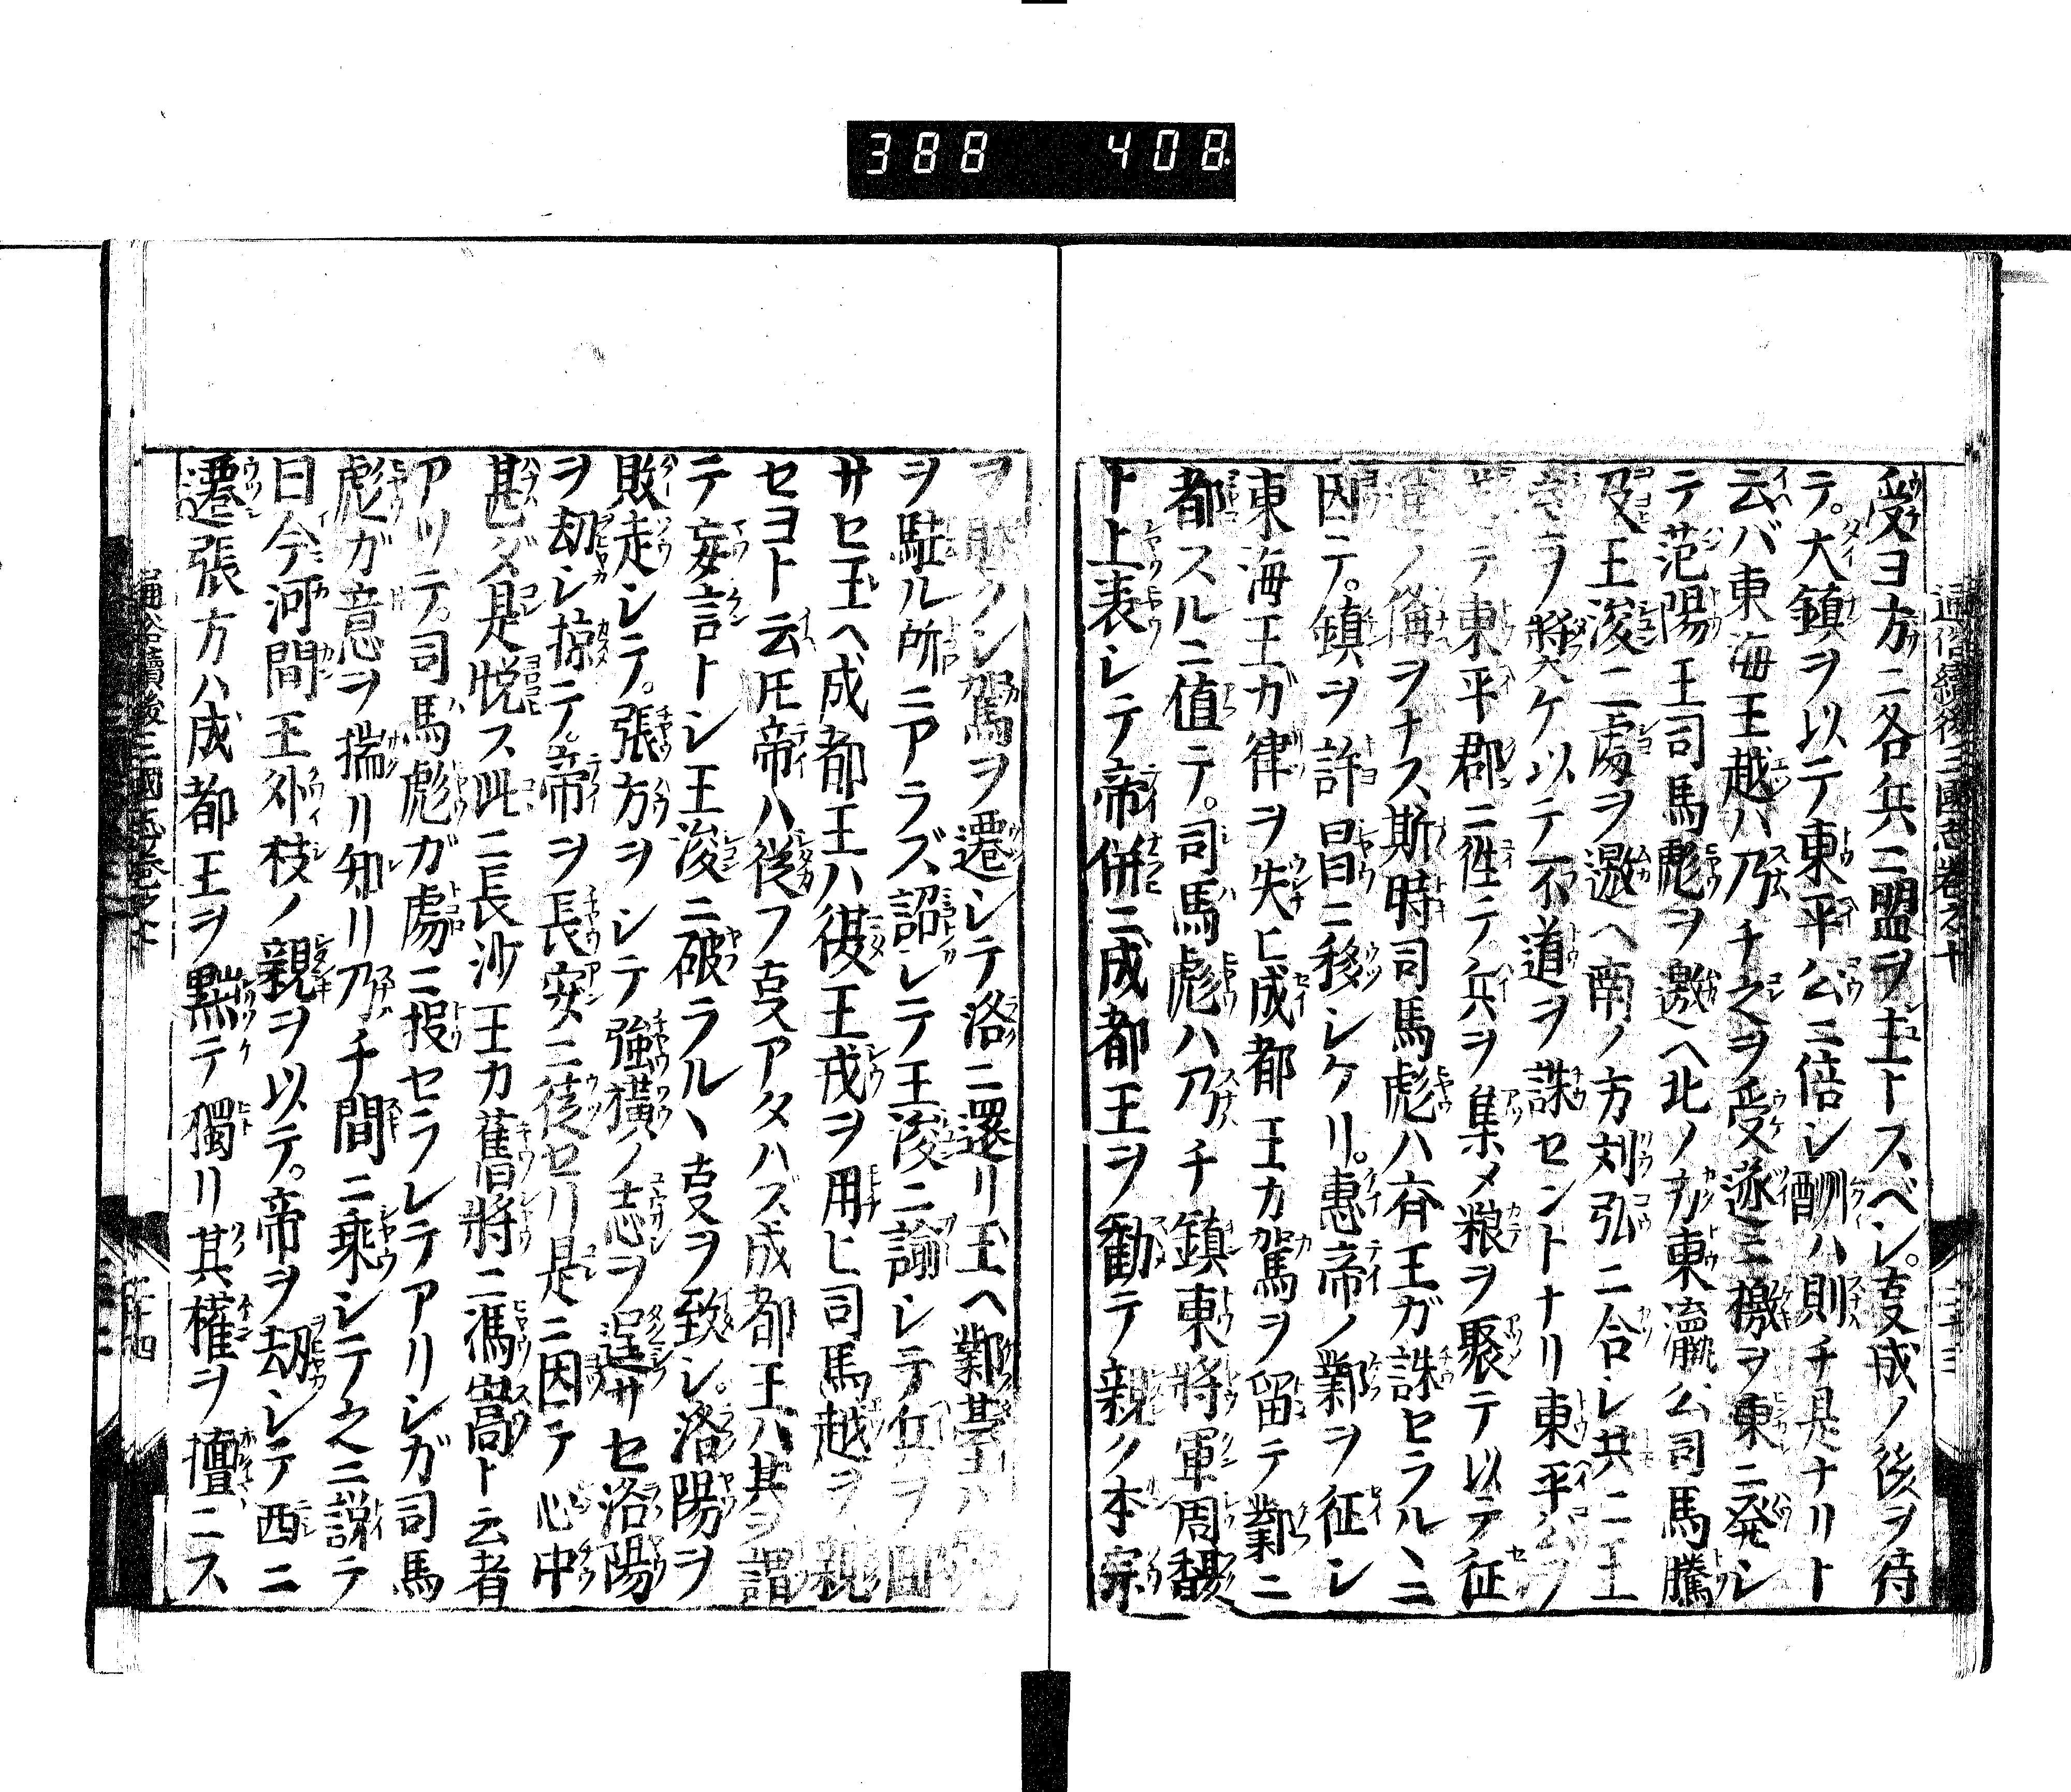 388 408
通俗續後三國志卷之十 二十三
受ヨ方ニ各兵ニ盟ヲ主トスベシ。事成ノ後ヲ待
テ。大鎮ヲ以テ東平公ニ倍シ酬ハ則チ是ナリト
云バ東海王越ハ乃チ之ヲ受遂ニ檄ヲ東ニ発シ
テ范陽王司馬彪ヲ邀ヘ北ノ方東瀛公司馬騰
及王浚二處ヲ邀ヘ南ノ方刘弘ニ合シ共ニ王
ヲ將ケ以テ不道ヲ誅セントナリ東平公ヲ
シテ東平郡ニ徃テ兵ヲ集メ粮ヲ聚テ以テ征
ノ備ヲナス斯時司馬彪ハ斉王ガ誅セラルヽニ
因テ。鎮ヲ許昌ニ移シケリ。惠帝ノ鄴ヲ征シ
東海王ガ律ヲ失ヒ成都王カ駕ヲ留テ鄴ニ
都スルニ値テ。司馬彪ハ乃チ鎮東将軍周馥
ト上表シテ帝併ニ成都王ヲ勧テ親ク本宗
ヲ シ駕ヲ遷シテ洛ニ還リ玉ヘ鄴臺ハ
ヲ駐ル所ニアラズ詔シテ王浚ニ諭シテ兵ヲ回
サセ玉ヘ成都王ハ復王戎ヲ用ヒ司馬越ヲ親
セヨト云𪜈帝ハ從フ事アタハズ成都王ハ其ヲ謂
テ妄言トシ王浚ニ破ラルヽ事ヲ致シ。洛陽ヲ
敗走シテ。張方ヲシテ強横ノ志ヲ逞サセ洛陽
ヲ刧シ掠テ。帝ヲ長安ニ徙セリ是ニ因テ心中
甚ダ是悦ス此ニ長沙王カ舊將ニ馮嵩ト云者
アツテ。司馬彪ガ處ニ投セラレテアリシガ司馬
彪ガ意ヲ揣リ知リ乃チ間ニ乗シテ之ニ説テ
曰今河間王外枝ノ親ヲ以テ。帝ヲ刼シテ西ニ
遷張方ハ成都王ヲ黜テ獨リ其權ヲ擅ニス
通俗續後三國志卷之十 二十四